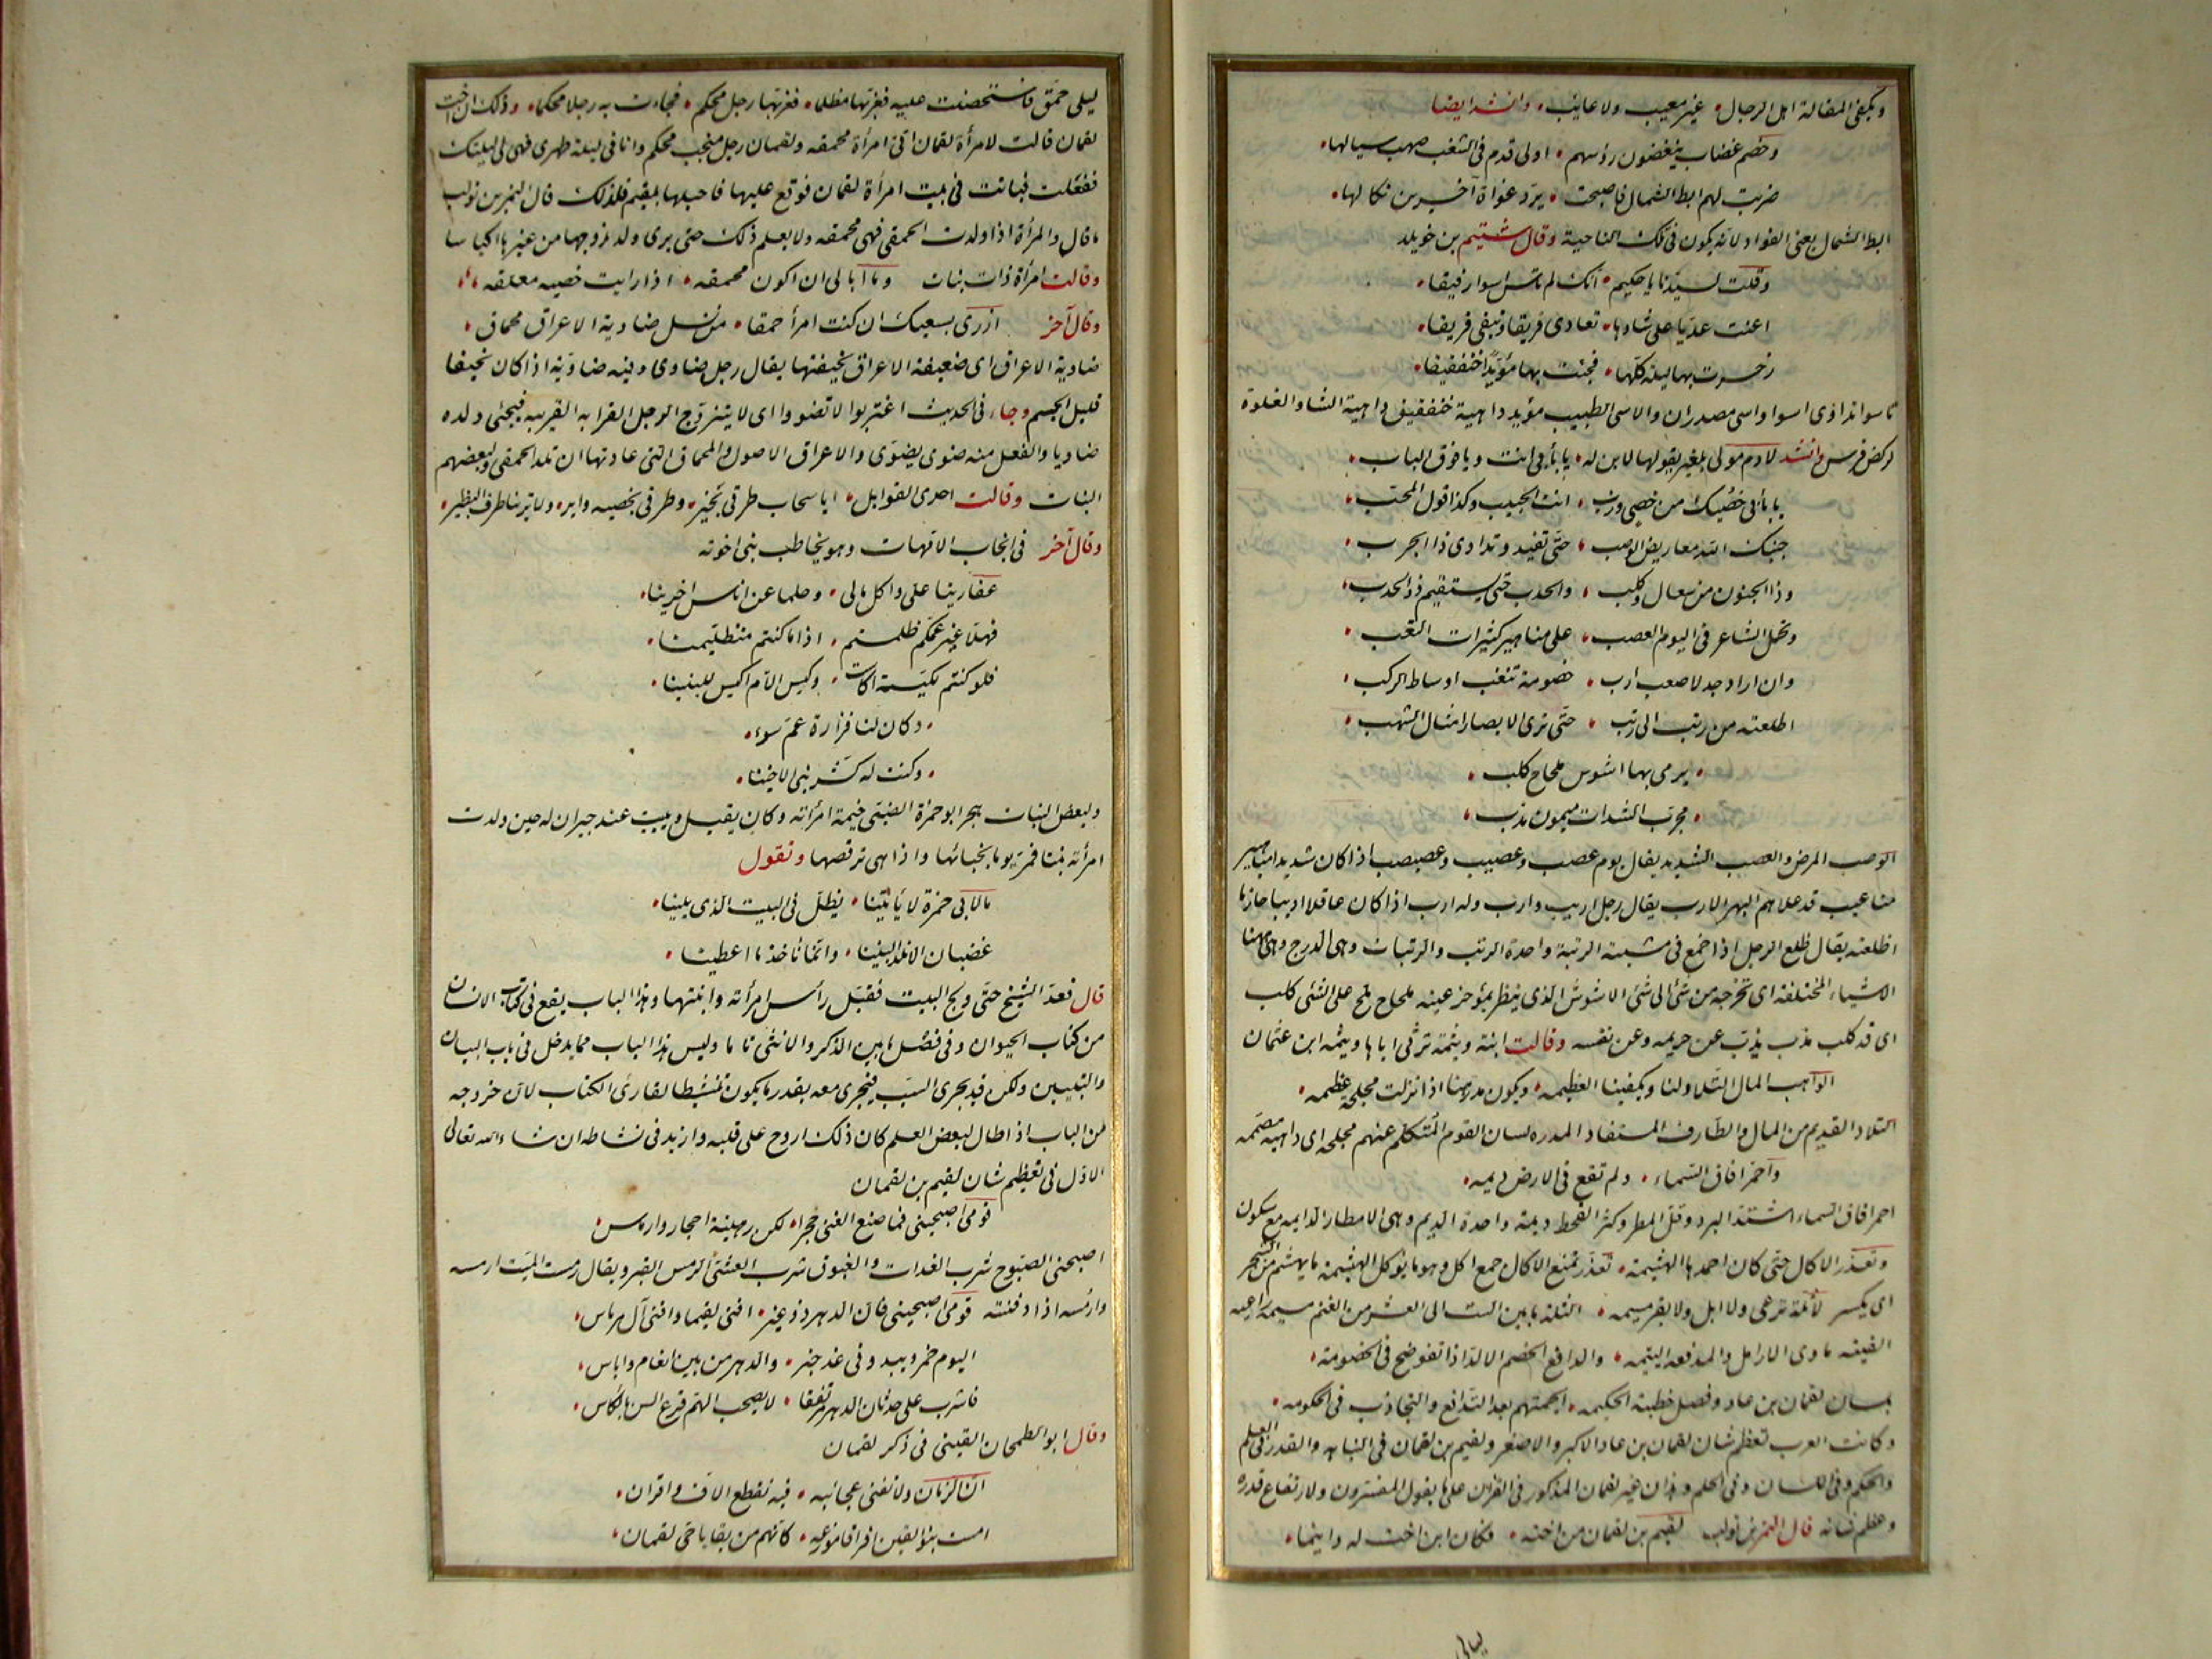 ويكفى المقالة اهل الرجال غير معيب ولا عايب وانشد ايضا
وخصم غضاب ينغضون رؤسهم اولى قدم فى الشغب صهب سبالها
ضربت لهم ابط الشمال فاصبحت يرد غواة آخرين نكالها
ابط الشمال يعنى الفواد لانه يكون فى تلك الناحية وقال شتيم بن خويلد
وقلت لسيدنا يا حكيم انك لم تاس اسوا رفيقا
اعنت عديا على شاوها تعادى فريقا وتبقى فريقا
زحرت بها ليلة كلها فجئت بها مؤيدا خنفقيقا
تاسو اتداوى اسوا واسى مصدران والاسى الطبيب مؤيد داهية خنفقيق داهية الشاو الغلوة
لركض فرس وانشد لادم مولى بلعنبر يقولها لابن له يا بأبى انت ويا فوق الباب
يا بأبى خصيك من خصى وزب انت الحبيب وكذا قول المحب
جنبك الله معاريض الوصب حتى تفيد وتداوى ذا الجرب
وذا الجنون من سعال وكلب والحدب حتى يستقيم ذو الحدب
وتحمل الشاعر فى اليوم العصب على مناهير كثيرات التعب
وان اراد جدلا صعب ارب خصومة تنقب اوساط الركب
اطلعته من رتب الى رتب حتى ترى الابصار امثال الشهب
يرمى بها اشوس ملحاح كلب
مجرب الشدات ميمون مذب
الوصب المرض والعصب الشديد يقال يوم عصب وعصيب وعصبصب اذا كان شديدا مناهير
متاعيب قد علاهم البهر الارب يقال رجل اريب وارب وله ارب اذا كان عاقلا اديبا حازما
اظلعته يقال ظلع الرجل اذا خمع فى مشيته الرتبة واحدة الرتب والرتبات وهى الدرج وهى ههنا
الاشياء المختلفة اى تخرجه من شئ الى شئ الاشوس الذى ينظر بمؤخر عينه ملحاح يلح على الشئ كلب
اى قد كلب مذب يذب عن حريمه وعن نفسه وقالت ابنة وثيمة ترثى اباها وثيمة ابن عثمان
الواهب المال التلاد لنا ويكفينا العظيمه ويكون مدرهنا اذا نزلت مجلحة عظيمه
التلاد القديم من المال والطارف المستفاد المدره لسان القوم المتكلم عنهم مجلحه اى داهية مصممه
واحمر افاق السماء ولم تقع فى الارض ديمه
احمر افاق السماء اشتد البرد وقل المطر وكثر القحط ديمة واحدة الديم وهى الامطار الدايمه مع سكون
وتعذر الاكال حتى كان احمدها الهشيمة تعذر تمنع الاكال جمع اكل وهو ما يؤكل الهشيمة ما يهشم من الشجر
اى يكسر لا ثلة ترعى ولا ابل ولا بقر مسيمه الثلة ما بين الست الى العشر من الغنم مسيمة راعيه
الفيته ماوى الارامل والمدفعه اليتيمه والدافع الخصم الالد اذا تفوضح فى الخصومة
بلسان لقمان بن عاد وفصل خطبته الحكيمه الجمتهم بعد التدافع والتجاذب فى الحكومه
وكانت العرب تعظم شان لقمان بن عاد الاكبر والاصغر ولقيم بن لقمان فى النباهة والقدر وفى العلم
والحكم وفى اللسان وفى الحلم وهذان غير لقمان المذكور فى القران على ما يقول المفسرون ولارتفاع قدره
وعظم شانه قال النمر بن تولب لقيم بن لقمان من اخته فكان ابن اخت له وابنما
ليالى
ليلى حمق فاستحصنت عليه فغر بها مظلما فغر بها رجل محكم فجاءت به رجلا محكما وذلك ان اخت
لقمان قالت لامرأة لقمان انى امرأة محمقه ولقمان رجل منجب محكم وانا فى ليلة طهرى فهبى لى ليلتك
ففعلت فباتت فى بيت امرأة لقمان فوقع عليها فاحبلها بلقيم فلذلك قال النمر بن تولب
ما قال والمرأة اذا ولدت الحمقى فهى محمقه ولا يعلم ذلك حتى يرى ولد زوجها من غيرها اكياسا
وقالت امرأة ذات بنات وما ابالى ان اكون محمقه اذا رايت خصيه معلقه
وقال آخر ازرى بسعيك ان كنت امرأ حمقا من نسل ضاوية الاعراق محماق
ضاوية الاعراق اى ضعيفة الاعراق نحيفتها يقال رجل ضاوى وفيه ضاوية اذا كان نحيفا
قليل الجسم وجاء فى الحديث اغتربوا لا تضووا اى لا يتزوج الرجل القرابه القريبه فيجئ ولده
ضاويا والفعل منه ضوى يضوى والاعراق الاصول والمحماق التى عادتها ان تلد الحمقى ولبعضهم
البنات وقالت احدى القوابل ايا سحاب طرقى بخير وطرقى بخصيه واير ولا ترينا طرف البظير
وقال آخر فى انجاب الامهات وهو يخاطب بنى اخوته
عفاريتا على واكل مالى وحلما عن اناس اخرينا
فهلا غير عمكم ظلمتم اذا ما كنتم متظلمينا
فلو كنتم لكيسة اكاست وكيس الام اكيس للبنينا
وكان لنا فزارة عم سوء
وكنت له كشر بنى الاخينا
ولبعض البنات هجر ابو حمزة الضبى خيمة امرأته وكان يقيل ويبيت عند جيران له حين ولدت
امرأته بنتا فمر يوما بخبائها واذا هى ترقصها وتقول
ما لابى حمزة لا يأتينا يظل فى البيت الذى يلينا
غضبان الا نلد البنينا وانما ناخذ ما اعطينا
قال فعدا الشيخ حتى ولج البيت فقبل رأس امرأته وابنتها وهذا الباب يقع فى كتاب الانسان
من كتاب الحيوان وفى فضل ما بين الذكر والانثى تاما وليس هذا الباب مما يدخل فى باب البيان
والتبيين ولكن قد يجرى السبب فيجرى معه بقدر ما يكون تنشيطا لقارئ الكتاب لان خروجه
من الباب اذا طال لبعض العلم كان ذلك اروح على قلبه وازيد فى نشاطه ان شاء الله تعالى
الاول فى تعظيم شان لقيم بن لقمان
قومى اصبحينى فما صنع الفتى حجرا لكن رهينة احجار وارماس
اصبحنى الصبوح شرب الغدات والغبوق شرب العشى الرمس القبر ويقال رمست الميت ارمسه
وارمسه اذا دفنته قومى اصبحينى فان الدهر ذو غير افنى لقيما وافنى آل هرماس
اليوم خمر ويبدو فى غد خبر والدهر من بين انعام واباس
فاشرب على حدثان الدهر مرتفقا لا يصحب الهم قرع السن بالكاس
وقال ابو الطمحان القينى فى ذكر لقمان
ان الزمان ولا تفنى عجائبه فيه تقطع الاف واقران
امست بنو القين افراقا موزعه كانهم من بقايا حى لقمان